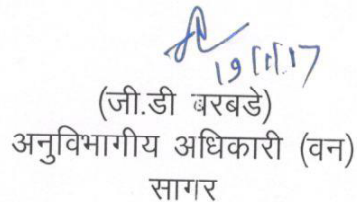 19/1/17
(जी.डी बरबडे)
अनुविभागीय अधिकारी (वन)
सागर